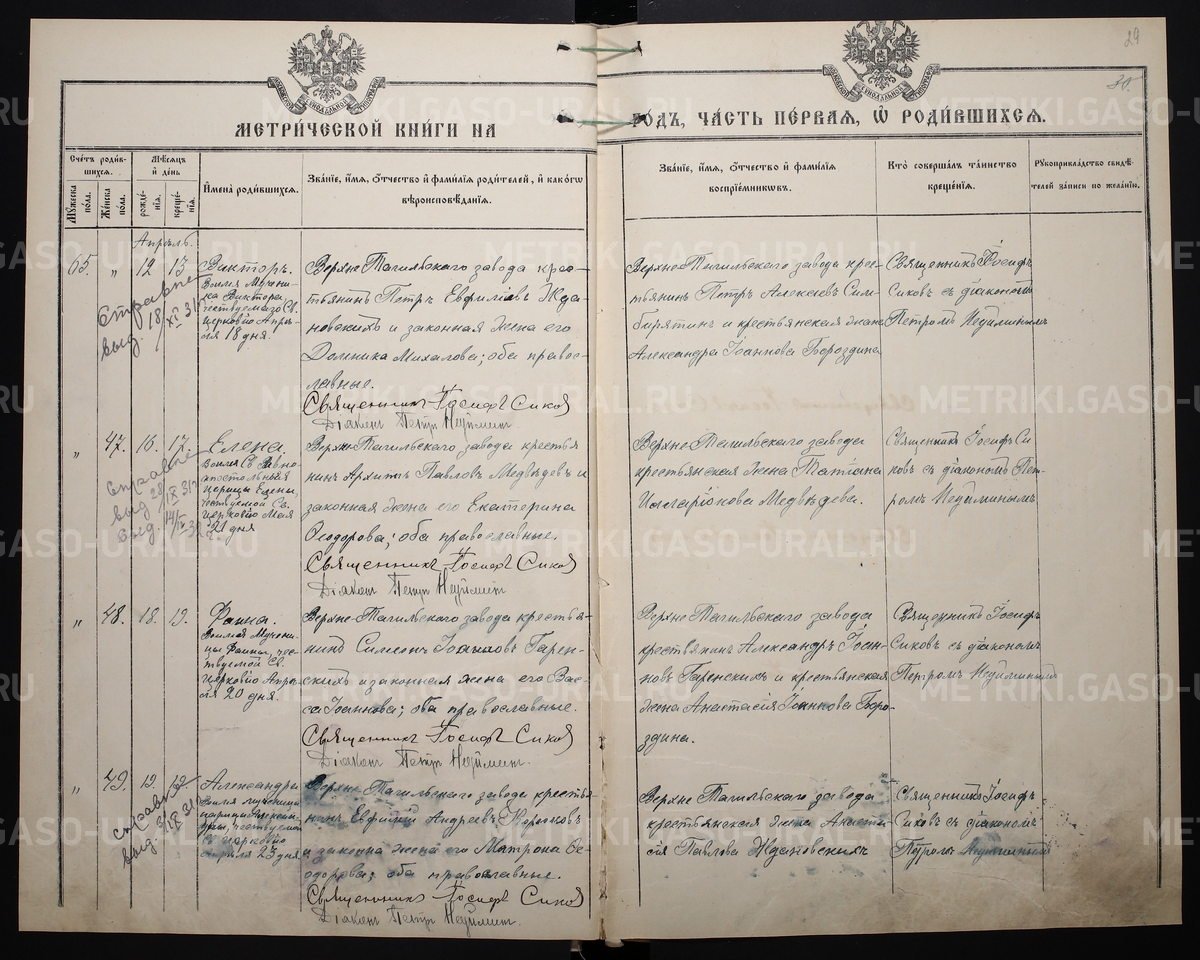 29
30.
МЕТРИ́ЧЕСКОЙ КНИ́ГИ НА
ГО́ДЪ, ЧА́СТЬ ПЕ́РВАЯ, Ѡ҆ РОДИ́ВШИХСЯ.
Сче́тъ роди́в-
шихся.
Му́жеска
по́ла.
Же́нска
по́ла.
Мѣ́сяцъ
и҆ де́нь
рожде́-
нія.
креще́-
нія.
И҆мена̀ роди́вшихся.
Зва́ніе, и҆́мя, ѻ҆́тчество и҆ фами́лія роди́телей, и҆ како́гѡ
вѣроисповѣ́данія.
Зва́ніе, и҆́мя, ѻ҆́тчество и҆ фами́лія
воспріе́мникѡвъ.
Кто̀ соверша́лъ та́инство
креще́нія.
Рукоприкла́дство свидѣ́-
телей за́писи по жела́нію.
Апрѣль.
65. " 12 13 Викторъ.
Во имя Мучени-
ка Виктора,
чествуемаго Св.
церковію Апрѣ-
ля 18 дня.
Справка
выд. 18/XI 31
Верхне-Тагильскаго завода крес-
тьянинъ Петръ Евфиміевъ Жда-
новскихъ и законная жена его
Домника Михаилова; оба право-
лавные.
Священникъ Іосифъ Сиковъ
Діаконъ Петръ Недиминъ.
Верхне-Тагильскаго завода крес-
тьянинъ Петръ Алексѣевъ Сим-
бирятинъ и крестьянская жена
Александра Іоаннова Бороздина
Священникъ Іосифъ
Сиковъ съ діакономъ
Петромъ Недиминымъ
" 47. 16. 17. Елена
Во имя Св. Равно-
апостольныя
царицы Елены,
чествуемой Св.
церковію Мая
21 дня
Справка
выд 28/IX 31
выд. 14/IV 32 г.
Верхне-Тагильскаго завода крестья
нинъ Архипъ Павловъ Медвѣдевъ и
законная жена его Екатерина
Ѳеодорова; оба православные.
Священникъ Іосифъ Сиковъ
Діаконъ Петръ Недиминъ
Верхне-Тагильскаго завода
крестьянская жена Татіана
Илларіонова Медвѣдева.
Священникъ Іосифъ Си
ковъ съ діакономъ Пет-
ромъ Недиминымъ
" 48. 18. 19. Фаина.
Во имя Мучени-
цы Фаины, чес-
твуемой Св.
церковію Апрѣ-
ля 20 дня.
Верхне-Тагильскаго завода крестья-
нинъ Симеонъ Іоанновъ Гарен-
скихъ и законная жена его Вас-
са Іоаннова; оба православные.
Священникъ Іосифъ Сиковъ
Діаконъ Петръ Недиминъ.
Верхне-Тагильскаго завода
крестьянинъ Александръ Іоан-
новъ Гаренскихъ и крестьянская
жена Анастасія Іоаннова Боро-
здина.
Священникъ Іосифъ
Сиковъ съ діакономъ
Петромъ Недиминымъ
" 49. 19. 19. Александра
Во имя мученицы
царицы Алексан-
дры, чествуемой
Св. церковію
Апрѣля 23 дня
справка
выд.
Верхне-Тагильскаго завода крестья
нинъ Евфимій Андреевъ
и законная жена его Матрона Ѳе-
одорова; оба православные.
Священникъ Іосифъ Сиковъ
Діаконъ Петръ Недиминъ.
Верхне Тагильскаго завода
крестьянская жена Анаста
сія Павлова Ждановскихъ
Священникъ Іосифъ
Сиковъ съ діакономъ
Петромъ Недиминымъ
METRIKI.GASO-URAL.RU